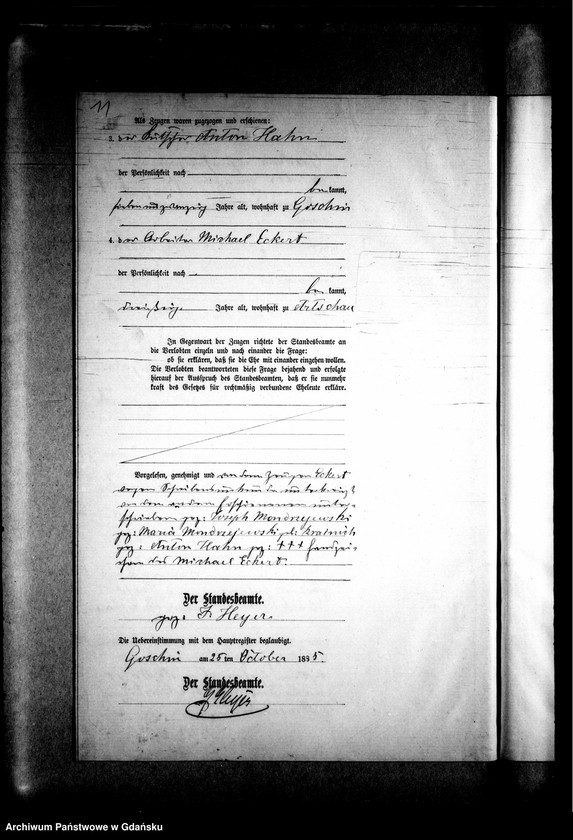 11
Als Zeugen waren zugezogen und erschienen:
3. der Kutscher Anton Hahn
der Persönlichkeit nach
be kannt,
siebenundzwanzig Jahre alt, wohnhaft zu Goschin
4. der Arbeiter Michael Eckert
der Persönlichkeit nach
be kannt,
dreißig Jahre alt, wohnhaft zu Artschau
In Gegenwart der Zeugen richtete der Standesbeamte an
die Verlobten einzeln und nach einander die Frage:
ob sie erklären, daß sie die Ehe mit einander eingehen wollen.
Die Verlobten beantworteten diese Frage bejahend und erfolgte
hierauf der Ausspruch des Standesbeamten, daß er sie nunmehr
kraft des Gesetzes für rechtmäßig verbundene Eheleute erkläre.
Vorgelesen, genehmigt und von dem Zeugen Eckert
wegen Schreibensunkunde unterkreuzt
von den andern Erschienenen unter-
schrieben gez: Joseph Mondrzejewski
gez: Maria Mondrzejewski geb:
gez: Anton Hahn gez: +++ Handzei-
chen des Michael Eckert.
Der Standesbeamte.
gez: F. Heyer
Die Uebereinstimmung mit dem Hauptregister beglaubigt.
Goschin am 25 ten October 1885.
Der Standesbeamte.
Heyer
Archiwum Państwowe w Gdańsku